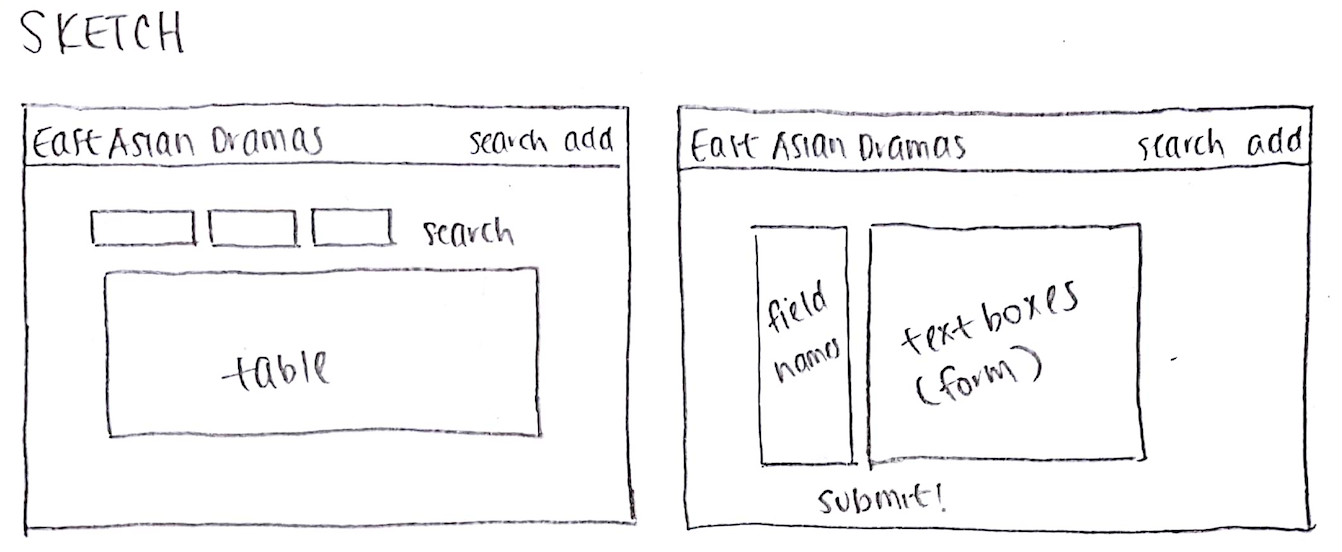 SKETCH
East Asian Dramas search add
search
table
East Asian Dramas search add
field
names
text boxes
(form)
submit!